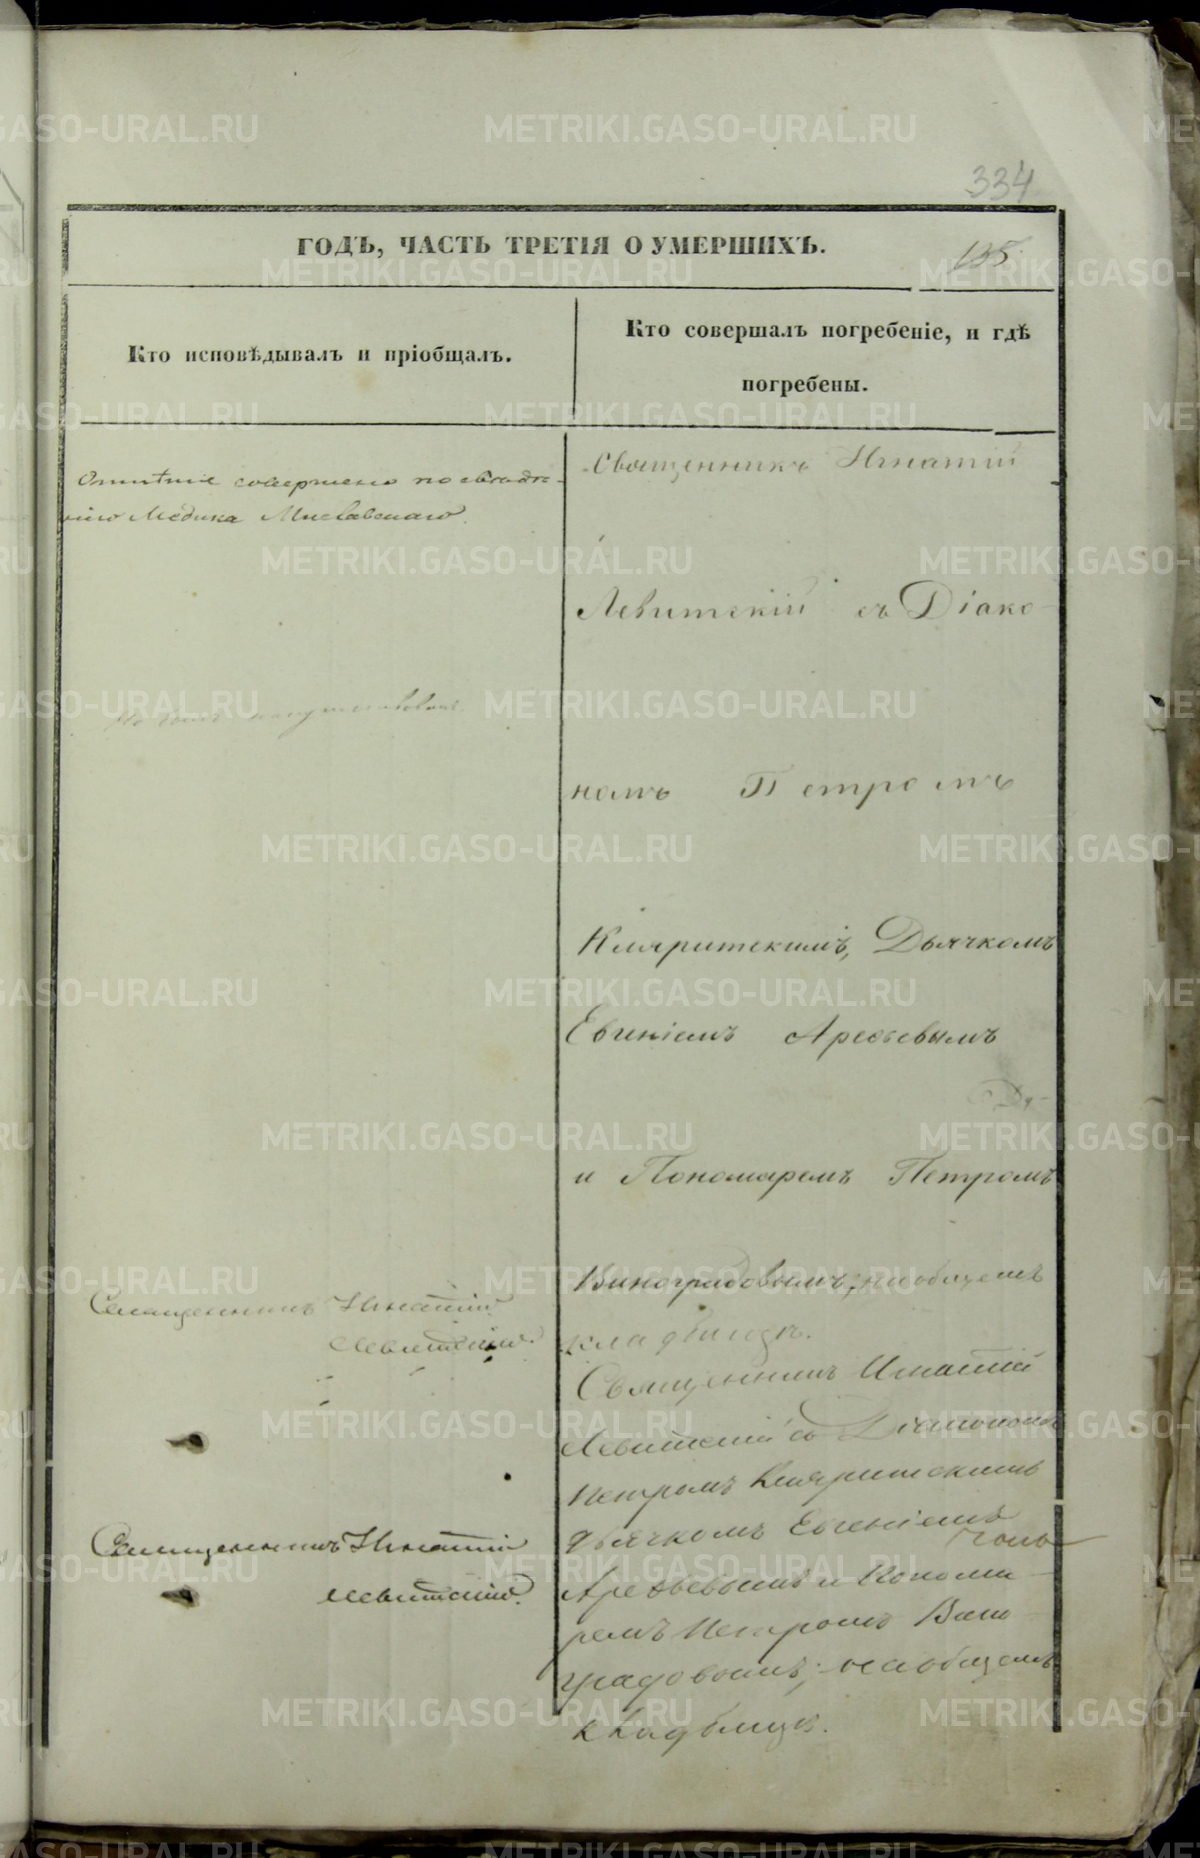 334
ГОДЪ, ЧАСТЬ ТРЕТІЯ О УМЕРШИХЪ.
135.
Кто исповѣдывалъ и пріобщалъ.
Кто совершалъ погребеніе, и гдѣ
погребены.
Отпѣтіе совершено по свидѣте-
Медика
Священникъ Игнатій
Левитскій съ Діако-
номъ Петромъ
Кляритскимъ, Дьячкомъ
Евгеніемъ Арефьевымъ
и Пономаремъ Петромъ
Виноградовымъ, на общемъ
кладбищѣ.
Священникъ Игнатій
Левитскій
Священникъ Игнатій
Левитскій съ Діакономъ
Петромъ Кляритскимъ
дьячкомъ Евгеніемъ
Арефьевымъ и Понома-
ремъ Петромъ Вино-
градовымъ, на общемъ
кладбищѣ.
Священникъ Игнатій
Левитскій.
METRIKI.GASO-URAL.RU